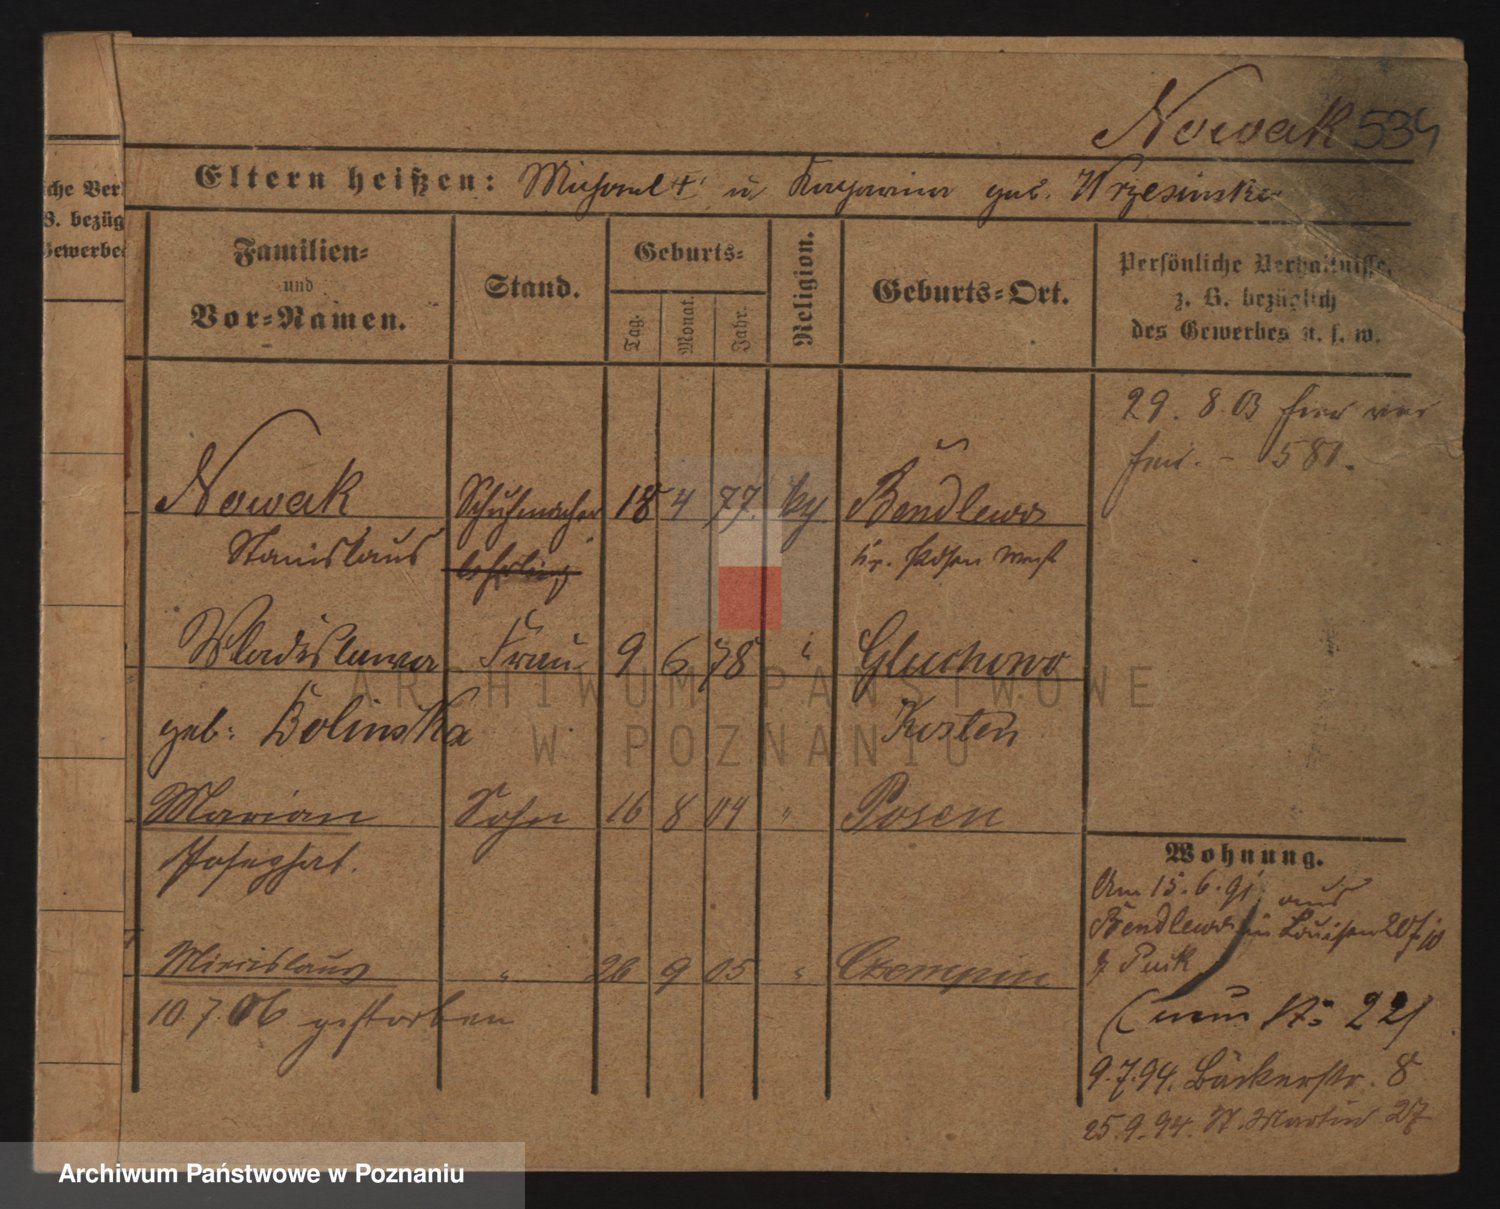 Nowak 534
Eltern heißen: Michael † u. Katharina geb. Wrzesinska
che Ver
B. bezüg
Gewerbe
Familien-
und
Vor-Namen.
Stand.
Geburts-
Tag.
Monat.
Jahr.
Religion.
Geburts-Ort.
Persönliche Verhältnisse,
z. B. bezüglich
des Gewerbes u. s. w.
29. 8. 03 hier
580.
Nowak Schuhmacher 18 4 77. Bendlewo
Stanislaus lehrling Kr. Posen West
Wladislawa Frau 9 6 78 " Gluchowo
geb: Bolinska Kosten
Marian Sohn 16 8 04 " Posen
Josephat.
Miecislaus " 26 9 05 " Czempin
10. 7. 06 gestorben
Wohnung.
Am 15. 6. 91 aus
Bendlewo in Louisen 20
(neue No 22)
9. 7. 94. Bäckerstr. 8
25. 9. 94. St. Martin 27
ARCHIWUM PAŃSTWOWE
W POZNANIU
Archiwum Państwowe w Poznaniu